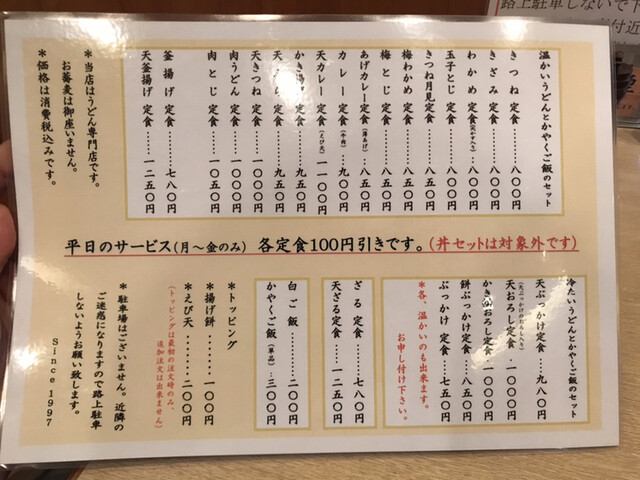 温かいうどんとかやくご飯のセット
きつね 定食……八〇〇円
きざみ 定食……八〇〇円
わかめ 定食(天かす入り)…八〇〇円
玉子とじ 定食……八〇〇円
きつね月見定食……八五〇円
梅わかめ 定食……八五〇円
梅とじ 定食……八五〇円
あげカレー定食(薄あげ)…八五〇円
カレー 定食(牛肉)…九〇〇円
天カレー 定食(えび天)一一〇〇円
かき揚げ 定食……九五〇円
定食……九五〇円
天きつね 定食……一〇〇〇円
肉うどん 定食……一〇〇〇円
肉とじ 定食……一〇五〇円
釜揚げ 定食……七八〇円
天釜揚げ 定食……一二五〇円
*当店はうどん専門店です。
お蕎麦は御座いません。
*価格は消費税込みです。
平日のサービス(月～金のみ) 各定食100円引きです。(丼セットは対象外です)
冷たいうどんとかやくご飯のセット
天ぶっかけ定食…九八〇円
(天ぶっかけおろし入り)
天おろし定食・一〇〇〇円
かきあおろし定食・一〇〇〇円
餅ぶっかけ定食…八五〇円
ぶっかけ 定食…七五〇円
*各、温かいのも出来ます。
お申し付け下さい。
ざる 定食……七八〇円
天ざる定食…一二五〇円
白ご飯……二〇〇円
かやくご飯(単品)…三〇〇円
*トッピング
*揚げ餅……一〇〇円
*えび天……二〇〇円
(トッピングは最初の注文時のみ、
追加注文は出来ません)
*駐車場はございません。近隣の
ご迷惑になりますので路上駐車
しないようお願い致します。
Since 1997
路上駐車しないで下